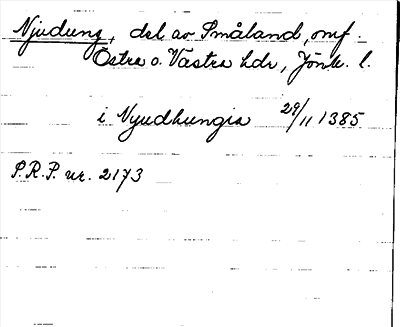 Njudung, del av Småland, omf.
Östra o. Västra hdr, Jönk. l.
i Nyudhungia 29/11 1385
S.R.P. nr. 2173